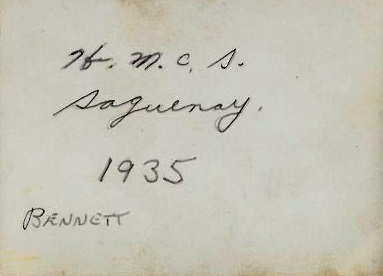 H. M. C. S.
Saguenay.
1935
BENNETT